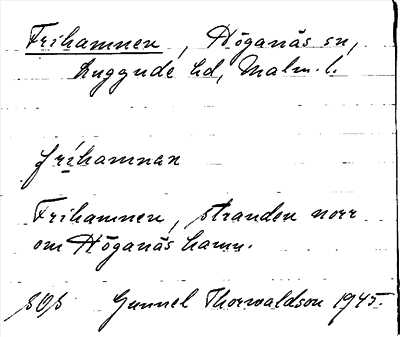 Frihamnen, Höganäs sn,
Luggude hd, Malm. l.
frihamnan
Frihamnen, stranden norr
om Höganäs hamn.
SOS Gunnel Thorwaldson 1945.